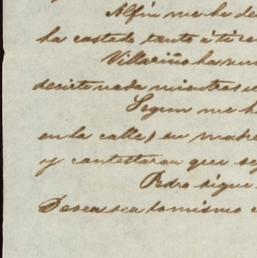 Alfin me ha de
ha costado tanto á ti
Villariño ha
decirte nada mientras
Segun me h
en la calle, en madr
y contestaron que se
Pedro sigue
Desea sea lo mismo